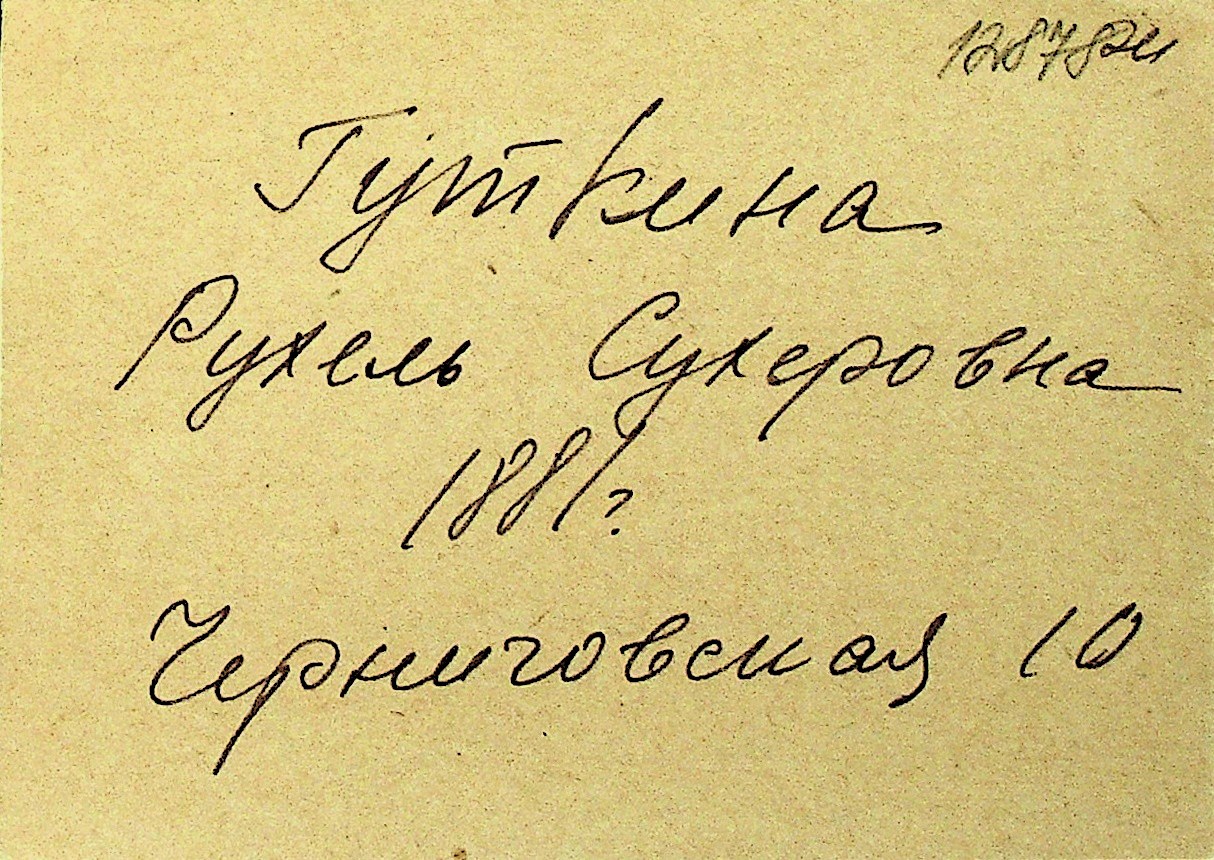 12878ги
Гуткина
Рухель Сухеровна
1881?
Черниговская 10